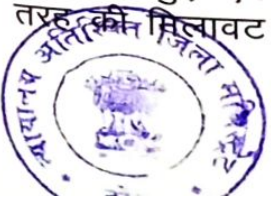 तरह की मिलावट
न्यायालय अतिरिक्त जिला मजिस्ट्रेट